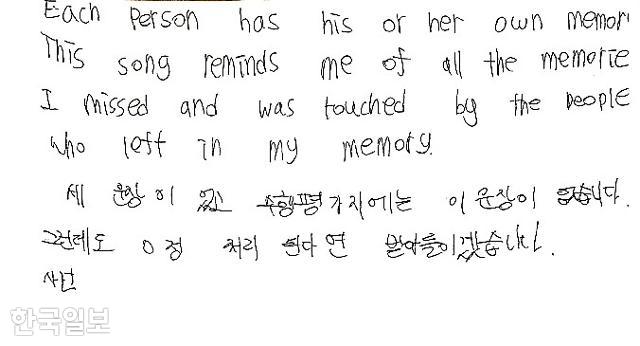 Each person has his or her own memor
This song reminds me of all the memorie
I missed and was touched by the people
who left in my memory.
세 문장이 수행평가지에는 이 문장이 없습니다.
그런데도 0점 처리 된다면 받아들이겠습니다.
한국일보